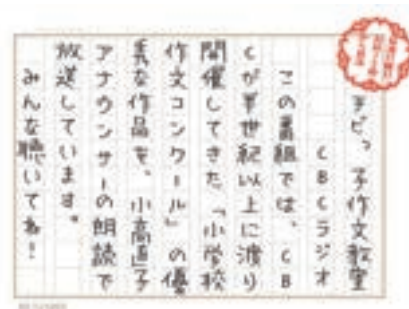 チビっ子作文教室
CBCラジオ
この番組では、CB
Cが半世紀以上に渡り
開催してきた「小学校
作文コンクール」の優
秀な作品を、小高直子
アナウンサーの朗読で
放送しています。
みんな聴いてね！